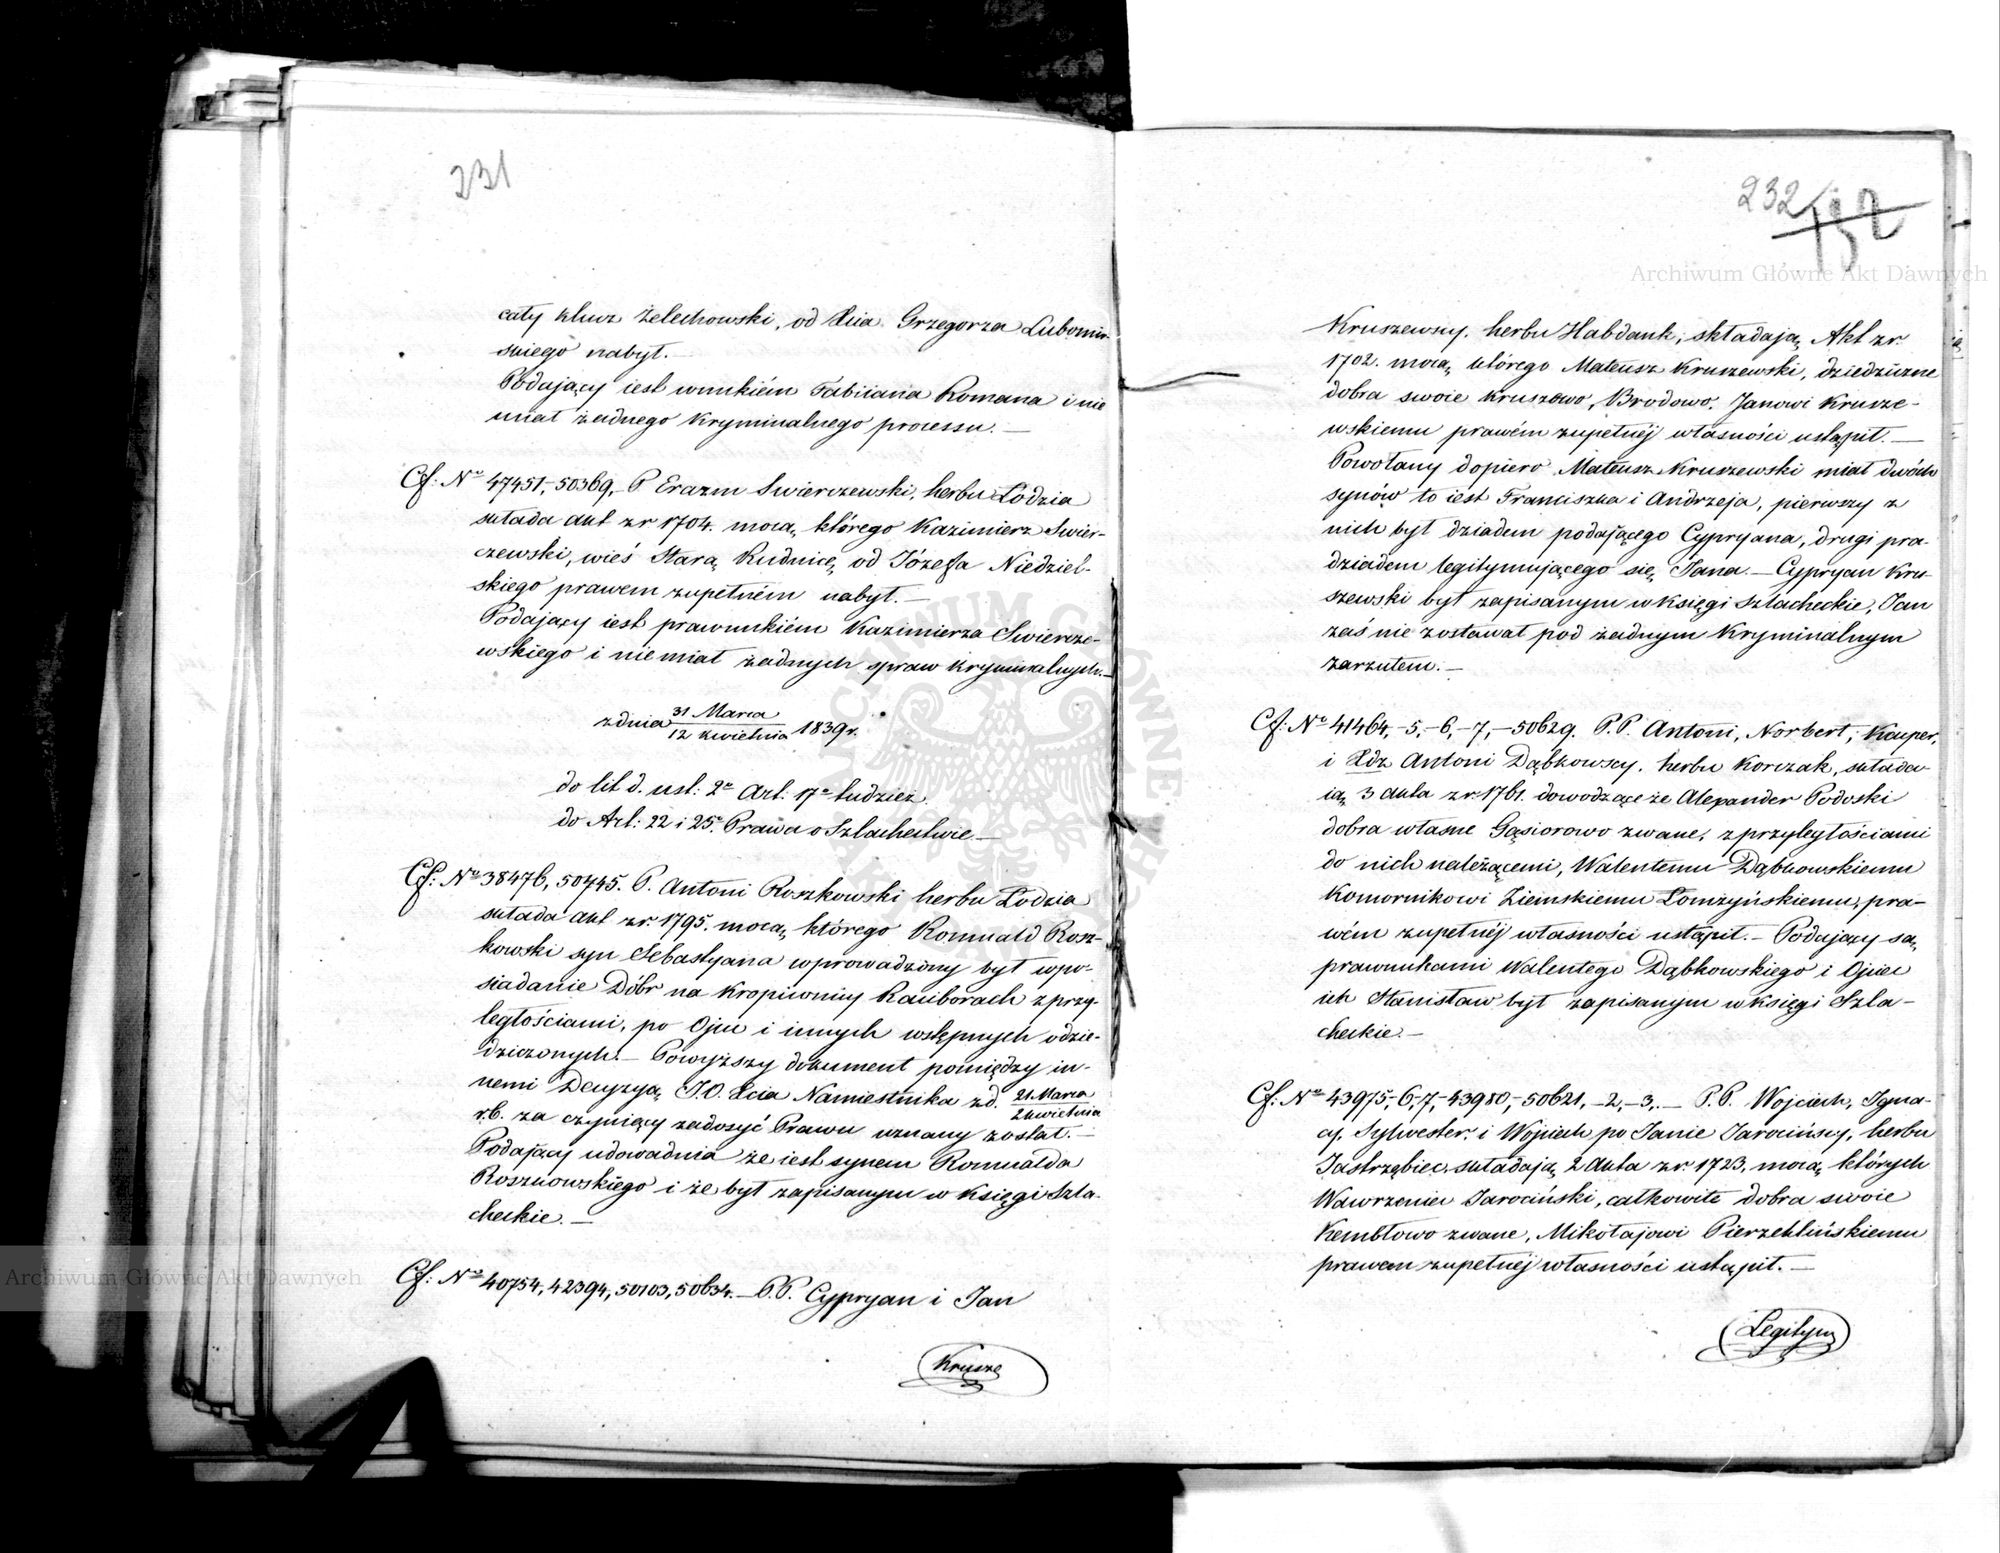 231
cały klucz Żelechowski, od Xcia Grzegorza Lubomir-
skiego nabył.—
Podający iest wnukiém Fabiiana Romana i nie
miał żadnego kryminalnego processu.—
Cf: Nro 47451,-50369,- P Erazm Swierczewski, herbu Łodzia
składa akt zr 1704. mocą, którego Kazimierz Swier-
czewski, wieś Starą Rudnicę, od Józefa Niedziel-
skiego prawem zupełném nabył.—
Podający iest prawnukiém Kazimierza Swiercze-
wskiego i niemiał żadnych spraw kryminalnych.—
zdnia 31 Marca / 12 kwietnia 1839 r.
do lit d. ust: 2o Art: 17o tudzież
do Art: 22 i 25o Prawa o Szlachectwie—
Cf: No 38476, 50745. P. Antoni Roszkowski herbu Łodzia
składa akt zr. 1795. mocą, którego Romuald Rosz-
kowski syn Sebastyana wprowadzony był wpo-
siadanie Dóbr na Kropiwnicy Raciborach zprzy-
ległościami, po Ojcu i innych wstępnych odzie-
dziczonych.— Powyższy dokument pomiędzy in-
nemi Decyzyą J.O. Xcia Namiestnika zd. 21 Marca / 2 kwietnia
r.b. za czyniący zadosyć Prawu uznany został.—
Podający udowadnia że iest synem Romualda
Roszkowskiego i że był zapisanym w Księgi Szla-
checkie.—
Cf: Nro 40754, 42394, 50103, 50634.— P.P. Cypryan i Jan
Krusze
232
152
Kruszewscy, herbu Habdank, składają Akt zr
1702. mocą, którego Mateusz Kruszewski, dziedziczne
dobra swoie Kruszewo, Brodowo, Janowi Krusze-
wskiemu prawém zupełnéj własności ustąpił.—
Powołany dopiero Mateusz Kruszewski miał dwóch
synów to iest Franciszka i Andrzeja, pierwszy z
nich był dziadem podającego Cypryana, drugi pra-
dziadem legitymującego się, Jana.— Cypryan Kru-
szewski był zapisanym w księgi Szlacheckie, Jan
zaś nie zostawał pod żadnym kryminalnym
zarzutem.—
Cf: No 41464,-5,-6,-7,-50629. P.P. Antoni, Norbert, Kacper,
i Xdz Antoni Dąbkowscy, herbu Korczak, składa-
ią 3 akta zr 1761. dowodzące że Alexander Podoski
dobra własne Gąsiorowo zwane, z przyległościami
do nich należącemi, Walentemu Dąbkowskiemu
Komornikowi Ziemskiemu Łomżyńskiemu, pra-
wém zupełnéj własności ustąpił.— Podający są,
prawnukami Walentego Dąbkowskiego i Ojciec
ich Stanisław był zapisanym w księgi Szla-
checkie.—
Cf: Nro 43975,-6,-7,-43980,-50621,-2,-3,.— P.P. Wojciech, Igna-
cy, Sylwester, i Wojciech po Janie Jarocińscy, herbu
Jastrzębiec, składają 2 akta zr 1723. mocą których
Wawrzeniec Jarociński, całkowite dobra swoie
Kembłowo zwane, Mikołajowi Pierzchlińskiemu
prawem zupełnéj własności ustąpił.—
Legitym
Archiwum Główne Akt Dawnych
Archiwum Główne Akt Dawnych
ARCHIWUM GŁÓWNE AKT DAWNYCH